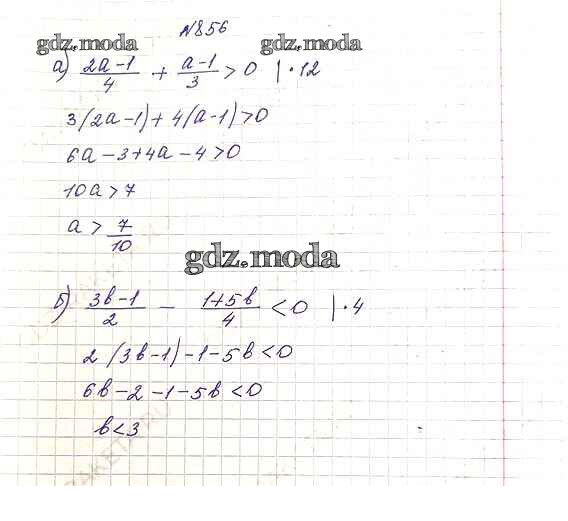 №856
gdz.moda gdz.moda
а) (2a-1)/4 + (a-1)/3 > 0 | ·12
3(2a-1)+4(a-1)>0
6a-3+4a-4>0
10a>7
a > 7/10
gdz.moda
б) (3b-1)/2 - (1+5b)/4 < 0 | ·4
2(3b-1)-1-5b<0
6b-2-1-5b<0
b<3